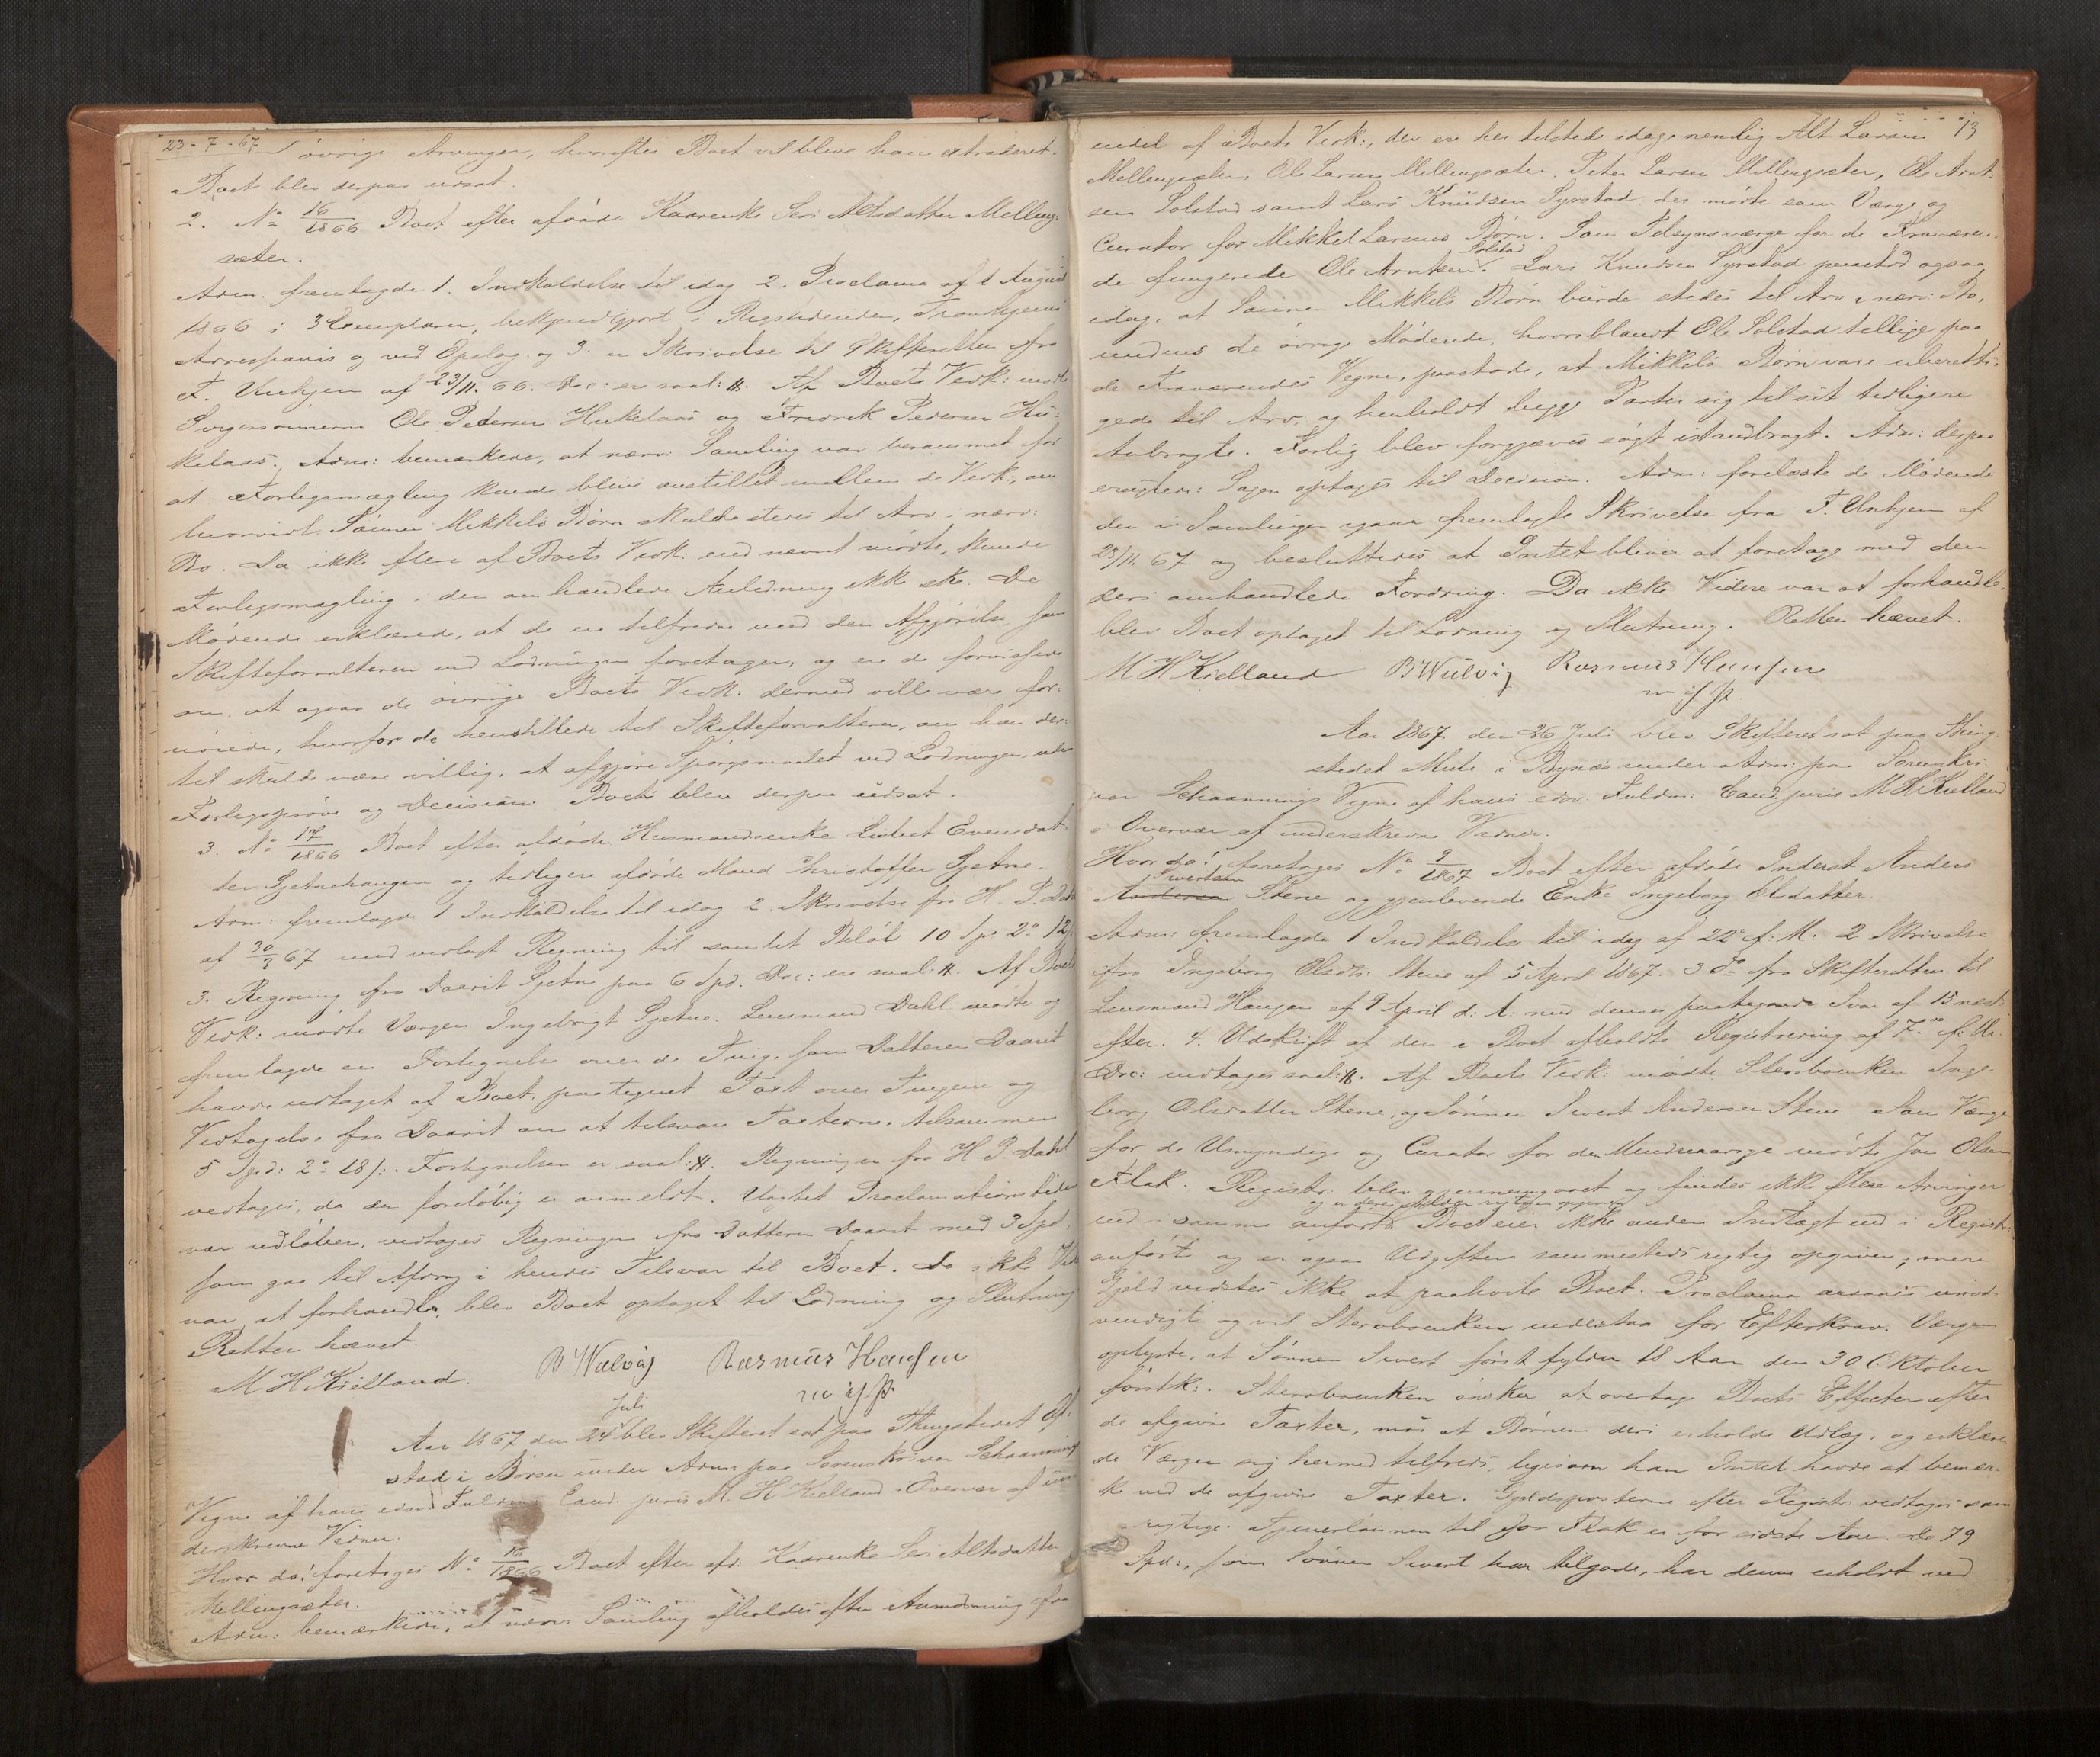 23-7-67
øvrige Arvinger, hvorefter Boet vil blive ham extraderet.
Boet blev derpaa udsat.
2. No 16/1866 Boet efter afdøde Kaarenke Seri Altsdatter Melling-
sæter.
Adm: fremlagde 1. Indkaldelse til idag 2. Proclama af 1 August
1866 i 3 Exemplarer, bekjendtgjort i Rigstidenden, Trondhjems
Adresseavis og ved Opslag og 3. en Skrivelse til Skifteretten fra
F. Unhjem af 23/11. 66. Doc: er saal: #. Af Boets Vedk: mødte
Svigersønnerne Ole Pedersen Hukelaas og Fredrik Pedersen Hu-
kelaas. Adm: bemærkede, at nærv: Samling var berammet for
at Forligsmægling kunde blive anstillet mellem de Vedk:, om
hvorvidt Sønnen Mikkels Børn skulde stedes til Arv i nærv:
Bo. Da ikke flere af Boets Vedk: end nævnt mødte, kunde
Forligsmægling i den omhandlede Anledning ikke ske. De
Mødende erklærede, at de ere tilfredse med den Afgjørelse, som
Skifteforvalteren ved Lodningen foretager, og ere de forvissede
om, at ogsaa de øvrige Boets Vedk: dermed ville være for-
nøiede, hvorfor de henstillede til Skifteforvalteren, om han der-
til skulde være villig, at afgjøre Spørgsmaalet ved Lodningen, uden
Forligsprøve og Decision. Boet blev derpaa udsat.
3. No 17/1866 Boet efter afdøde Husmandsenke Evensdat-
ter Gjetnehaugen og tidligere afdøde Mand Christoffer Gjetne.
Adm: fremlagde 1 Indkaldelse til idag 2. Skrivelse fra H. P. Dahl
af 30/3 67 med vedlagt Regning til samlet Beløb 10 Spd 2 12
3. Regning fra Daarit Gjetne paa 6 Spd. Doc: ere saal: #. Af Boets
Vedk. mødte Værgen Ingebrigt Gjetne. Lensmand Dahl mødte og
fremlagde en Fortegnelse over de Ting, som Datteren Daarit
havde udtaget af Boet, paategnet Taxt over Tingene og
Vedtagelse fra Daarit om at tilsvare Taxterne, tilsammen
5 Spd: 2 18 /: Fortegnelsen er saal: #. Regningen fra H P. Dahl
vedtages, da den foreløbig er anmeldt. Uagtet Proclamationstiden
var udløben, vedtages Regningen fra Datteren Daarit med 3 Spd,
som gaa til Afdrag i hendes Tilsvar til Boet. Da ikke
var at forhandle, blev Boet optaget til Lodning og Slutning
Retten hævet.
M H Kielland. B Wulvig Rasmus Hansen
m i f P.
Juli
Aar 1867 den 24 blev Skifteret sat paa Thingstedet
stad i Børsen under Adm: paa Sorenskriver Schaannings
Vegne af hans edsv Fuldm: Cand. juris M. H Kielland i Overvær af un-
derskrevne Vidner.
Hvor da: foretoges No 16/1866 Boet efter afd: Kaarenke Seri Altsdatter
Mellingsæter.
Adm: bemærkede, at nærv: Samling afholdes efter Anmodning fra
13
endel af Boets Vedk:, der ere her tilstede idag, nemlig Alt Larsen
Mellingsæter, Ole Larsen Mellingsæter, Peter Larsen Mellingsæter, Ole Arnt-
sen Solstad samt Lars Knudsen Syrstad, der mødte som Værge og
Curator for Mikkel Larsens Børn. Som Tilsynsværge for de Fraværen-
Solstad
de fungerede Ole Arntsen. Lars Knudsen Syrstad paastod ogsaa
idag, at Sønnen Mikkels Børn burde stedes til Arv i nærv: Bo,
medens de øvrige Mødende, hvoriblandt Ole Solstad tillige paa
de Fraværendes Vegne, paastode, at Mikkels Børn vare uberetti-
gede til Arv, og henholdt begge Parter sig til sit tidligere
Anbragte. Forlig blev forgjæves søgt istandbragt. Adm: derpaa
eragtede: Sagen optages til Decision. Adm: forelæste de Mødende
den i Samlingen igaar fremlagte Skrivelse fra F. Unhjem af
23/11. 67 og besluttedes at Intet bliver at foretage med den
deri omhandlede Fordring. Da ikke Videre var at forhandle,
blev Boet optaget til Lodning og Slutning. Retten hævet.
M H Kielland B Wulvig Rasmus Hansen
m i f P.
Aar 1867 den 26 Juli blev Skifteret sat paa Thing-
stedet Mule i Bynæs under Adm: paa Sorenskri-
ver Schaannings Vegne af hans edsv. Fuldm: Cand. juris M H Kielland
i Overvær af underskrevne Vidner.
Hvor da: foretoges No 9/1867 Boet efter afdøde Inderst Anders
Sivertsen
Andersen Stene og gjenlevende Enke Ingeborg Olsdatter.
Adm: fremlagde 1 Indkaldelse til idag af 22 f: M: 2 Skrivelse
fra Ingeborg Olsdtr: Stene af 5 April 1867. 3 Do fra Skifteretten til
Lensmand Haugan af 9 April d: A: med dennes paategnede Svar af 15 næst-
efter. 4. Udskrift af den i Boet afholdte Registrering af 7. f. M.
Doc: indtages saal: #. Af Boets Vedk: mødte Stervboenken Inge-
borg Olsdatter Stene, og Sønnen Sivert Andersen Stene. Som Værge
for de Umyndige og Curator for den Mindreaarige mødte Jon Olsen
Flak. Registr: blev gjennemgaaet og findes ikke flere Arvinger
og er deres Alder rigtigen opgiven
end i samme anført. Boet eier ikke anden Indtægt end i Registr:
anført og er ogsaa Udgiften sammesteds rigtig opgiven; mere
Gjeld vidstes ikke at paahvile Boet. Proclama ansaaes unød-
vendigt og vil Stervboenken indestaa for Efterkrav. Værgen
oplyste, at Sønnen Sivert først fylder 18 Aar den 30 Oktober
førstk:. Stervboenken ønsker at overtage Boets Effecter efter
de afgivne Taxter, mod at Børnene deri erholde Udlæg, og erklære-
de Værgen sig hermed tilfreds, ligesom han Intet havde at bemær-
ke ved de afgivne Taxter. Gjeldsposterne efter Registr: vedtages som
rigtige. Tjenerlønnen til Jon Flak er for sidste Aar. De 79
Spd:, som Sønnen Sivert har tilgode, har denne erholdt ved